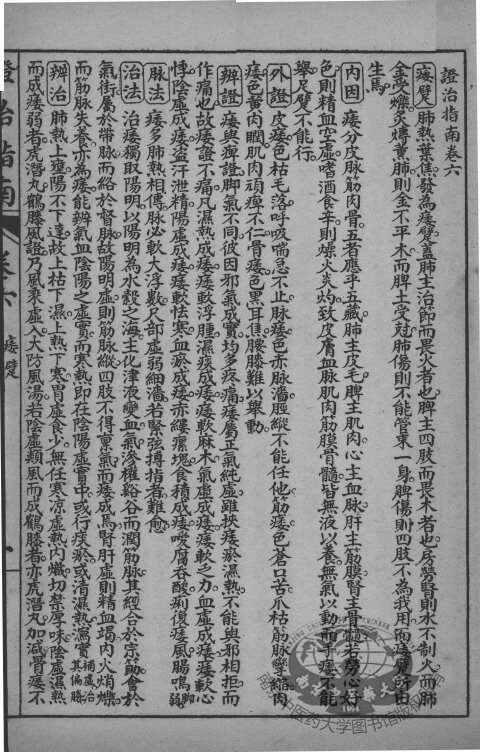 證治指南卷六
痿躄 肺熱葉焦發為痿躄蓋肺主治節而畏火者也脾主四肢而畏木者也房勞腎則水不制火而肺
金受爍炎燻薰肺則金不平木而脾土受尅肺傷則不能管束一身脾傷則四肢不為我用而痿躄所由
生焉
內因 痿分皮脉筋肉骨五者應乎五藏肺主皮毛脾主肌肉心主血脉肝主筋膜腎主骨髓若勞心好
色則精血空虛嗜酒食辛則燥火炎灼致皮膚血脉肌肉筋膜骨髓皆無液以養無氣以動而手痿不能
舉足躄不能行
外證 皮痿色枯毛落呼吸喘急不止脉痿色赤脉溢脛縱不能任他筋痿色蒼口苦爪枯筋脉攣縮肉
痿色黃肉瞤肌肉頑痺不仁骨痿色黑耳焦腰膝難以舉動
辨證 痿與痺證脚氣不同彼因邪氣成實均多疼痛痿屬正氣純虛雖挾痰瘀濕熱不能與邪相拒而
作痛也故痿證不痛凡濕熱成痿痿軟浮腫濕痰成痿痿軟麻木氣虛成痿痿軟乏力血虛成痿痿軟心
悸陰虛成痿盜汗泄精陽虛成痿痿軟怯寒血瘀成痿亦縷瘰塊食積成痿噯腐吞酸痢後痿風腸鳴脚弱
脉法 痿多肺熱相傳脉必軟大浮數尺部虛弱細濇若緊弦搏指者難愈
治法 治痿獨取陽明以陽明為水穀之海主化津液變血氣滲權谿谷而潤筋脉其經合於宗筋會於
氣街屬於帶脉而絡於督脉故陽明虛則筋脉縱四肢不得禀氣而痿成焉腎肝虛則精血竭內火銷爍
而筋脉失養亦為痿能辨氣血陰陽之虛實而寒熱即在陰陽虛實中或行痰瘀或清濕熱瀉實補虛治其偏勝
辨治 肺熱上壅陽不下達故上枯下濕上熱下寒胃虛食少無任寒涼虛熱內熾切禁厚味陰虛濕熱
而成痿弱者虎潛丸鶴膝風證乃風乘虛入大防風湯若陰虛類風而成鶴膝者亦虎潛丸加減骨痿不
證治指南
卷六
痿躄